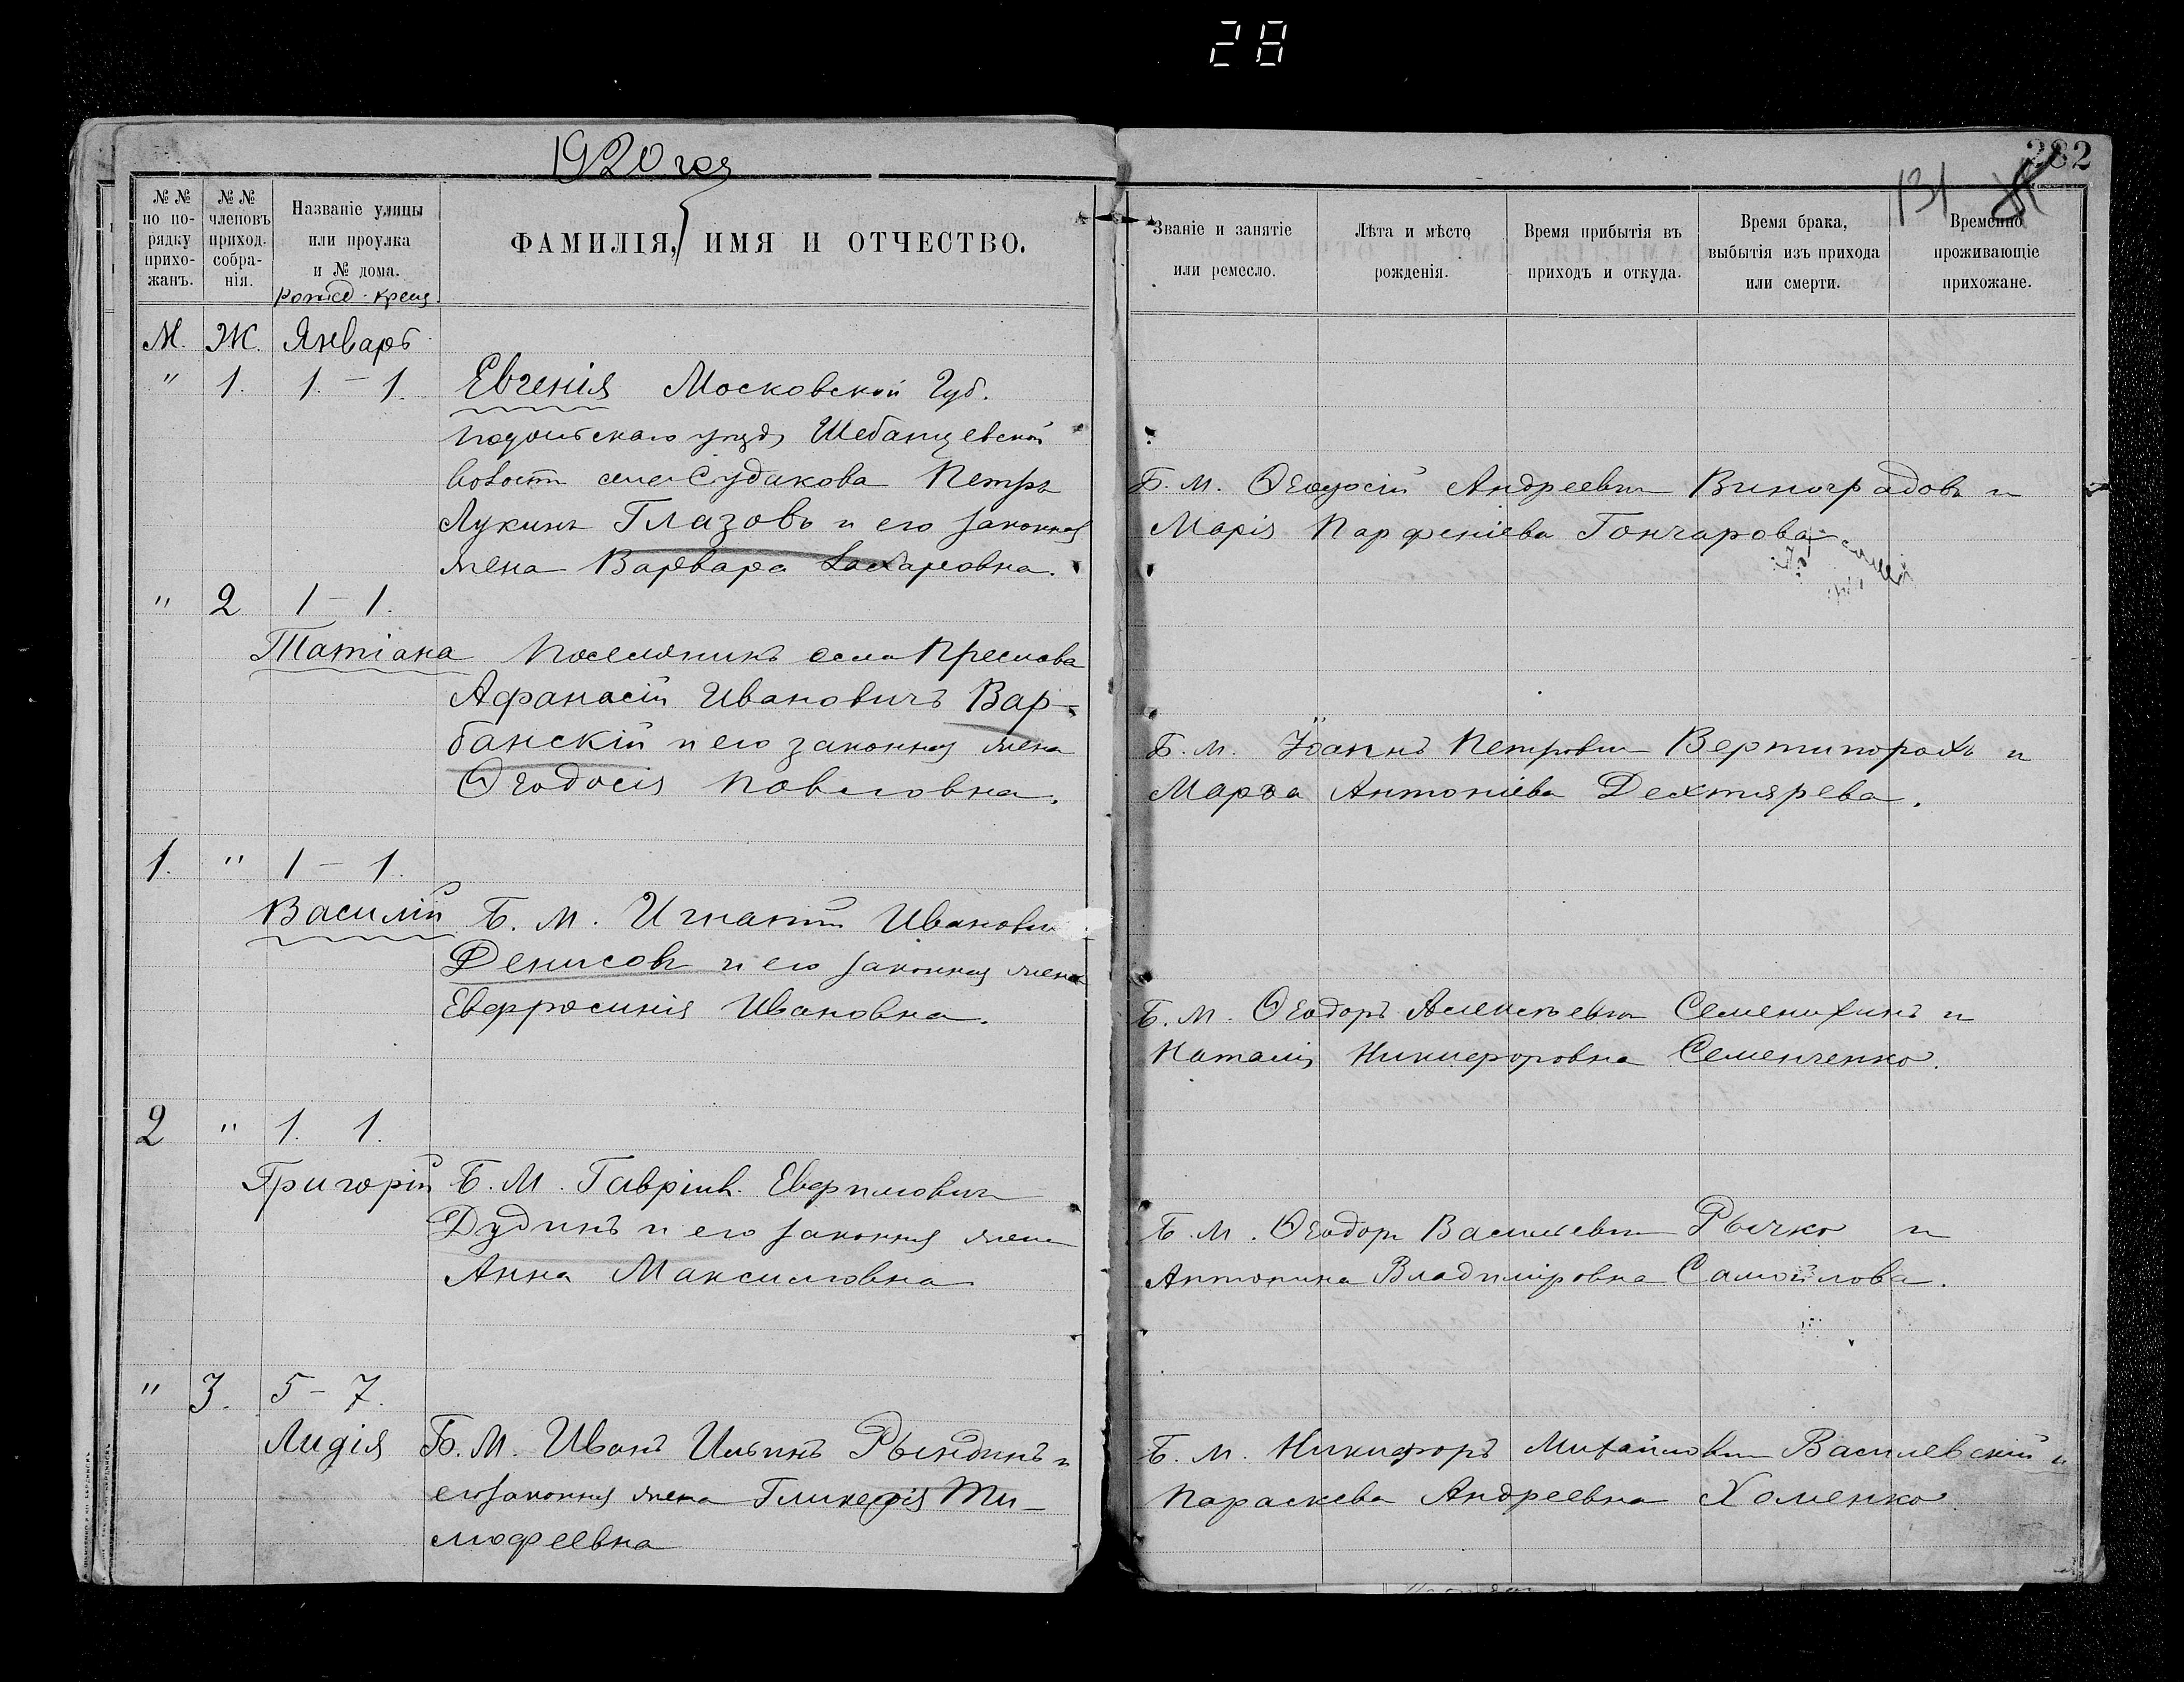 28
1920 год
282
131
№№ по по-
рядку
прихо-
жанъ.
№№
членовъ
приход.
собра-
нія.
Названіе улицы
или проулка
и № дома.
рожд. крещ.
ФАМИЛІЯ, ИМЯ И ОТЧЕСТВО.
Званіе и занятіе
или ремесло.
Лѣта и мѣсто
рожденія.
Время прибытія въ
приходъ и откуда.
Время брака,
выбытія изъ прихода
или смерти.
Временно
проживающіе
прихожане.
М. Ж. Январь
" 1. 1. – 1. Евгенія Московской Губ.
Подольскаго уѣзда Шебанцевской
волости села Судакова Петръ
Лукинъ Глазовъ и его законная
жена Варвара Захаровна.
Б. М. Ѳеодосій Андреевич Виноградовъ и
Марія Парфеніева Гончарова
" 2 1 – 1.
Татіана Поселянинъ села Преслава
Афанасій Ивановичъ Вар-
банскій и его законная жена
Ѳеодосія Павловна.
Б. М. Іоаннъ Петрович Вертипорохъ и
Марѳа Антоніева Дехтярева.
1. " 1 – 1.
Василій Б. М. Игнатій Иванович
Денисовъ и его законная жена
Евфросинія Ивановна.
Б. М. Ѳеодоръ Алексѣевич Семенихинъ и
Наталія Никифоровна Семенченко.
2 " 1. 1.
Григорій Б. М. Гавріилъ Евфимович
Дудинъ и его законная жена
Анна Максимовна
Б. М. Ѳеодоръ Васильевич Рычко и
Антонина Владиміровна Самойлова.
" 3. 5 – 7.
Лидія Б. М. Иванъ Ильинъ Рындинъ и
его законная жена Гликерія Ти-
мофеевна
Б. М. Никифоръ Михайлович Василевскій и
Параскева Андреевна Хоменко.